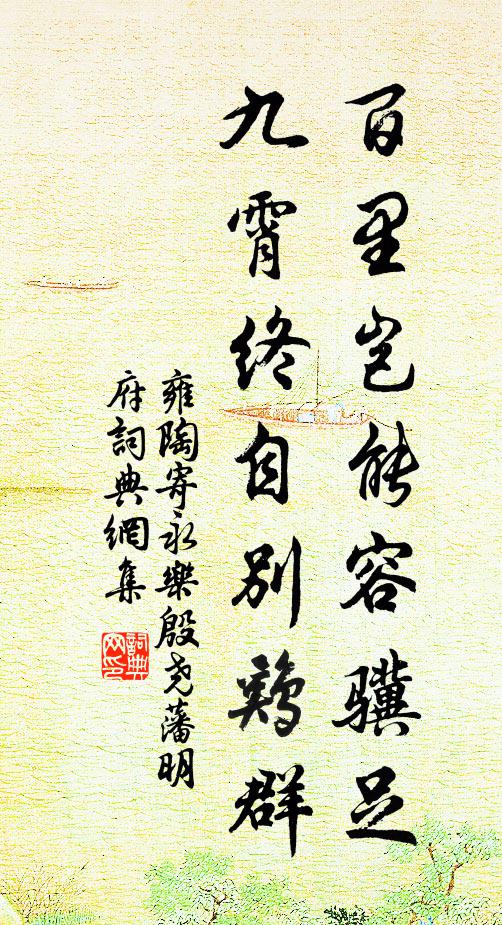 百里岂能容驥足
九霄终自别鷄群
雍陶寄永樂殷尧藩明
府詞典網集
詞典
网印